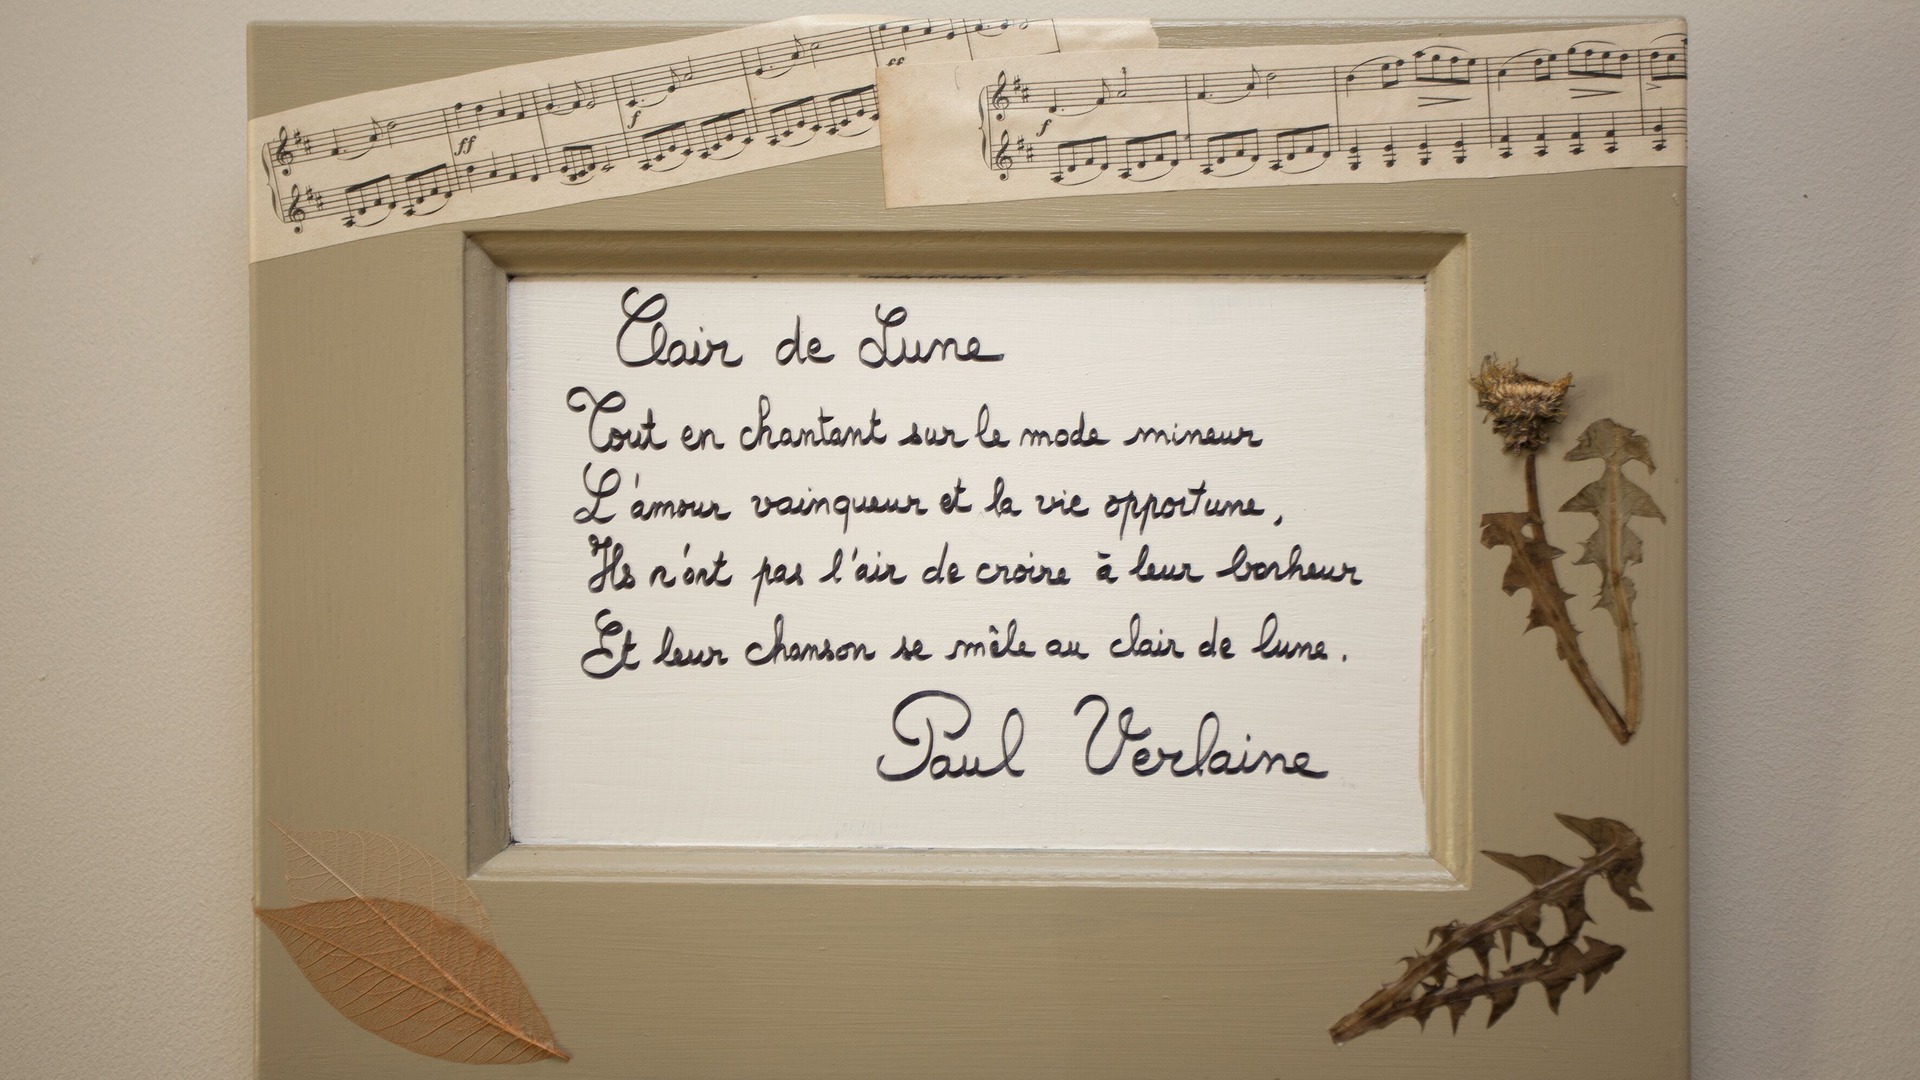 ff
f
ff
f
Clair de Lune
Tout en chantant sur le mode mineur
L'amour vainqueur et la vie opportune,
Ils n'ont pas l'air de croire à leur bonheur
Et leur chanson se mêle au clair de lune.
Paul Verlaine